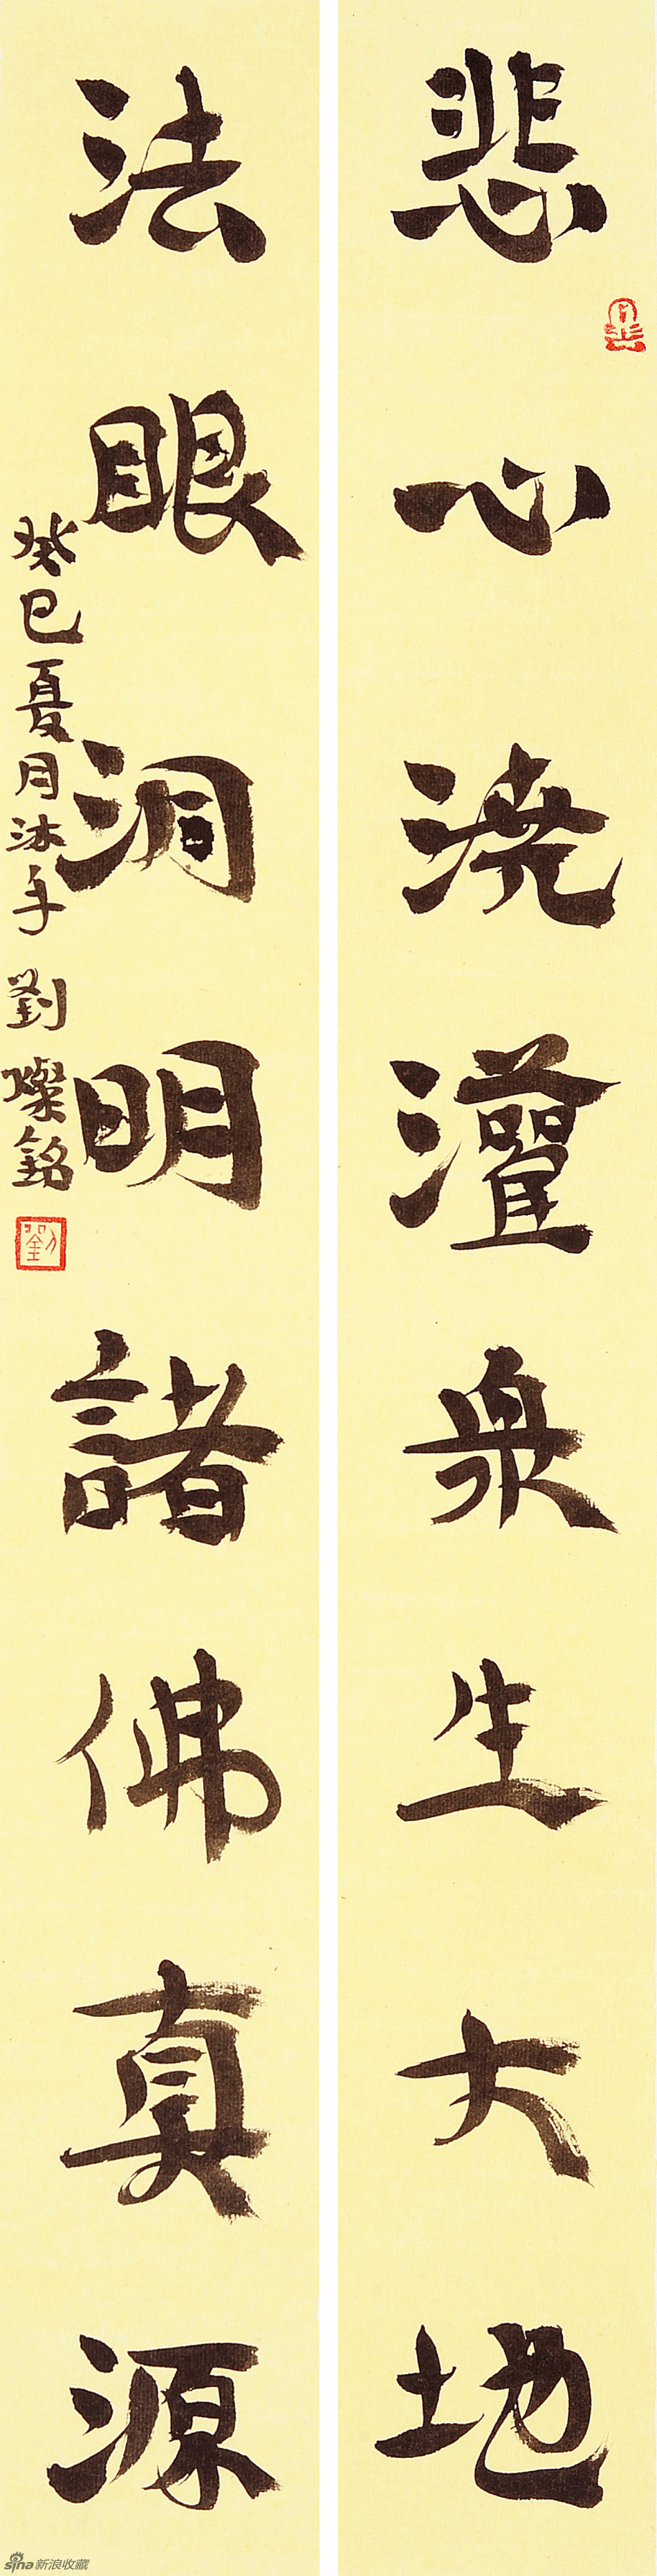 悲心浇灌衆生大地
法眼洞明諸佛真源
癸巳夏月沐手劉燦銘
劉
sina新浪收藏